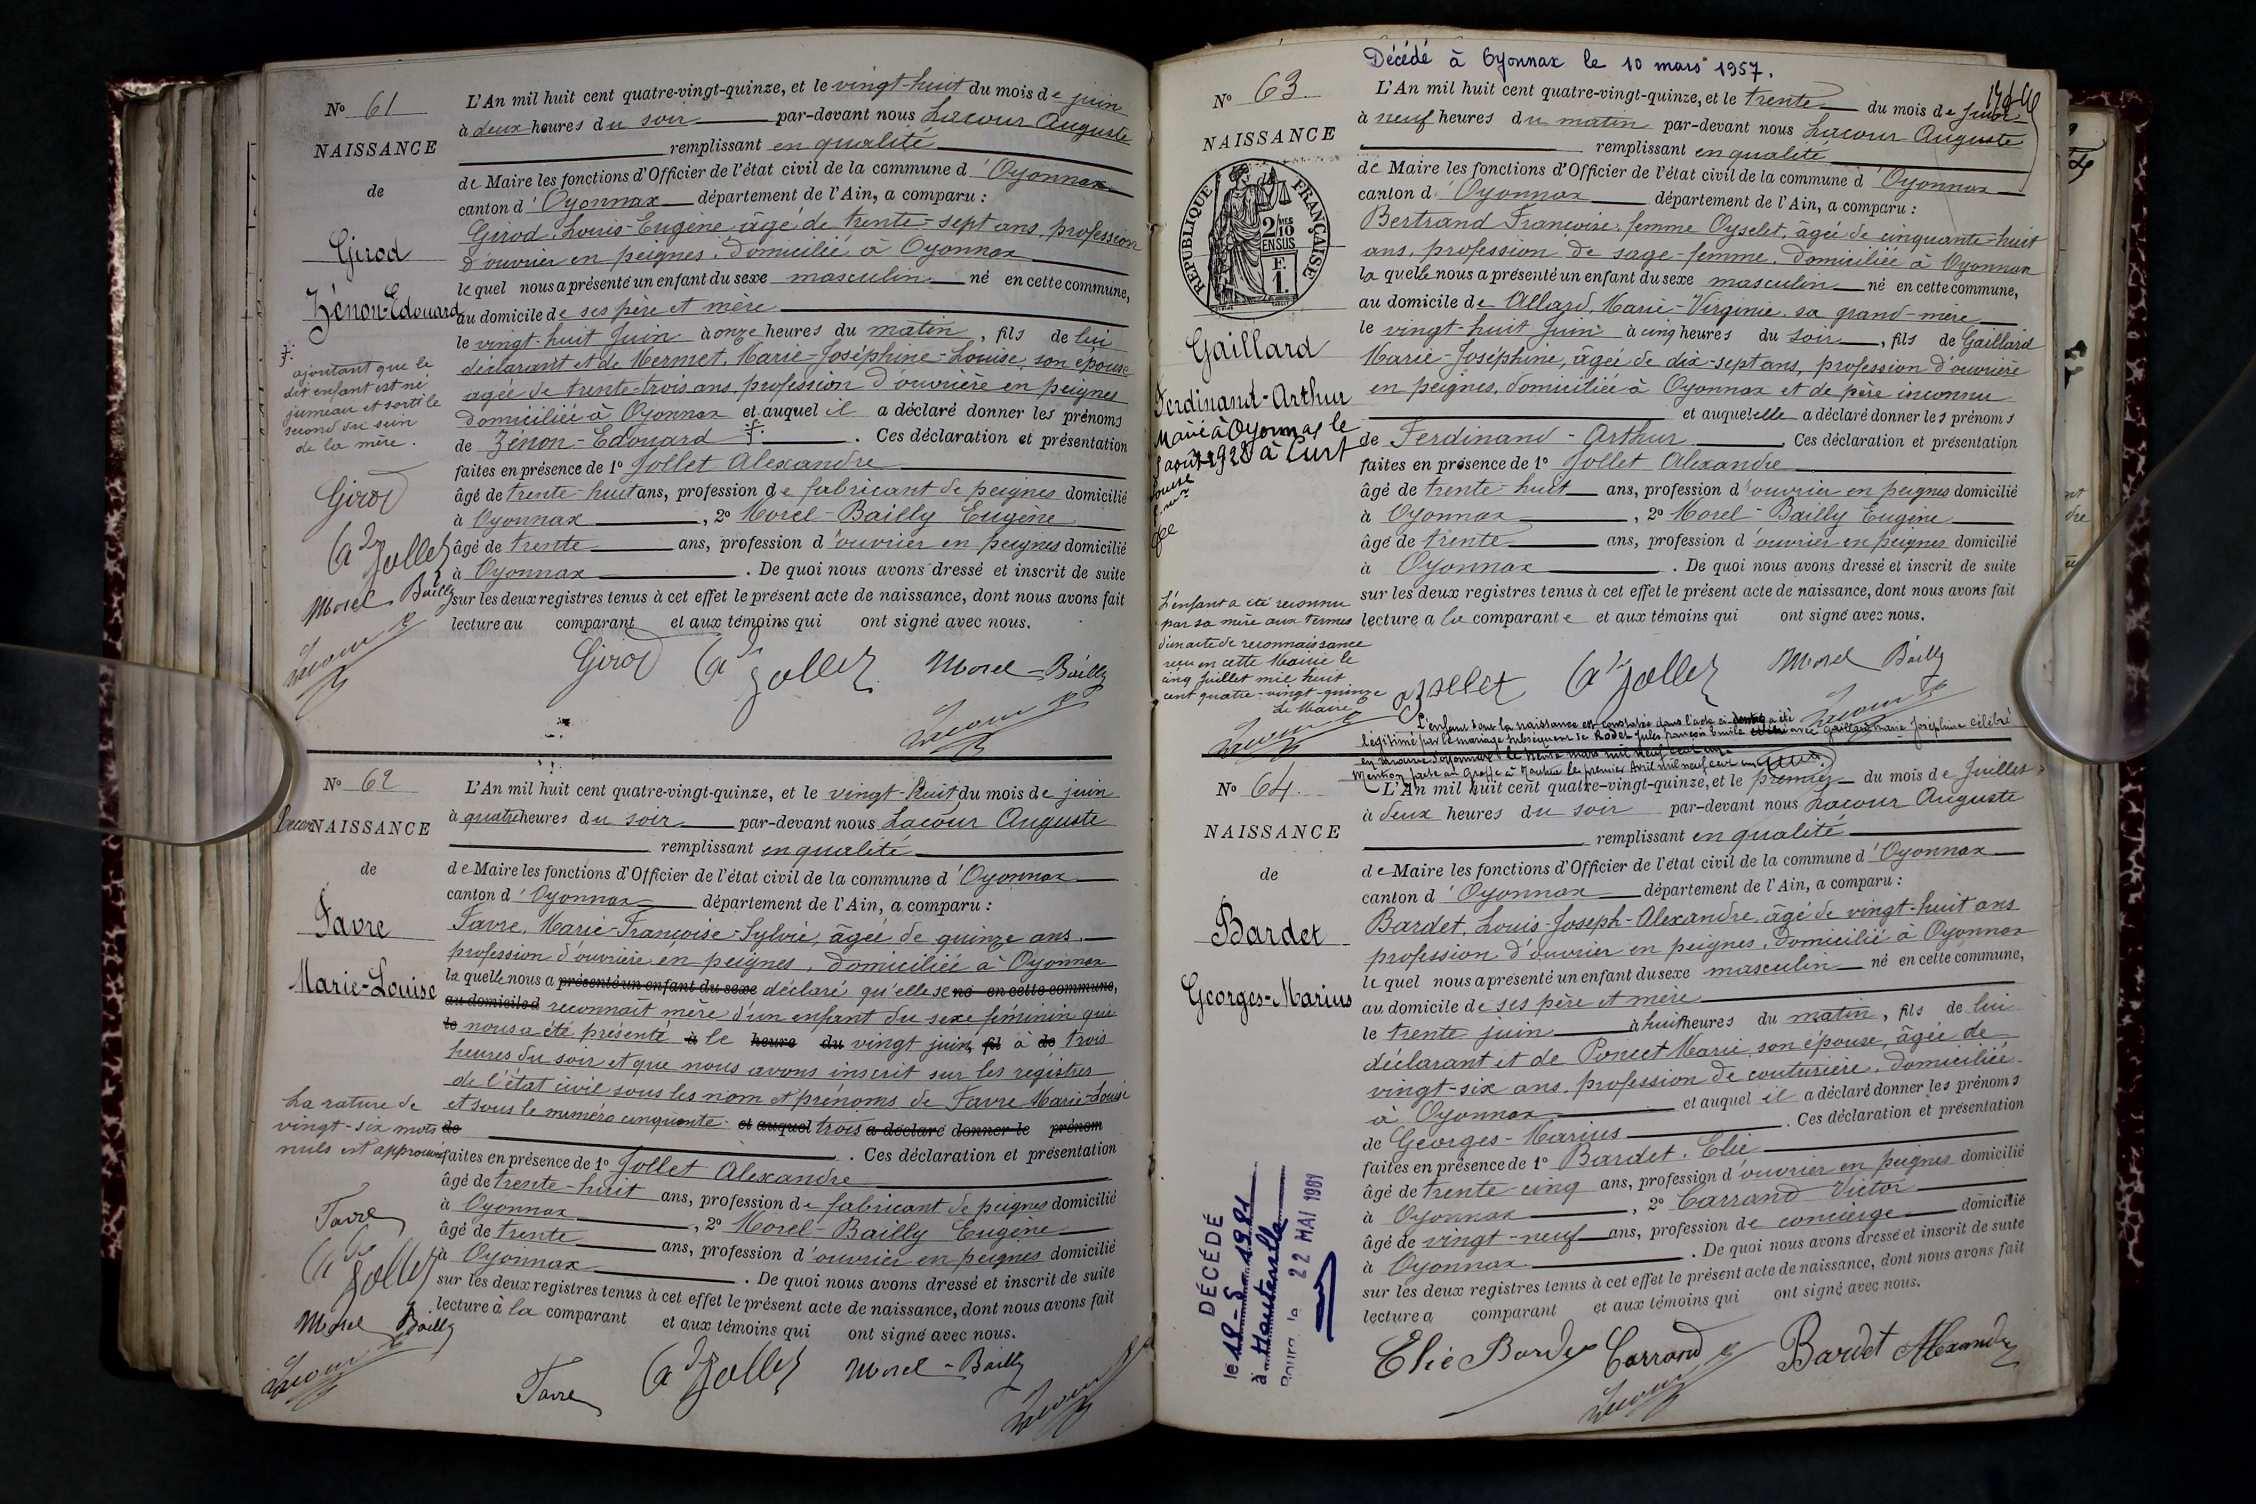 N° 61
NAISSANCE
de
Girod
Zénon-Edouard
L'An mil huit cent quatre-vingt-quinze, et le vingt-huit du mois de juin
à deux heures du soir par-devant nous Lacour Auguste
remplissant en qualité
de Maire les fonctions d'Officier de l'état civil de la commune d'Oyonnax
canton d'Oyonnax département de l'Ain, a comparu :
Girod, Louis-Eugène, âgé de trente-sept ans, profession
d'ouvrier en peignes, domicilié à Oyonnax
le quel nous a présenté un enfant du sexe masculin né en cette commune,
au domicile de ses père et mère
le vingt-huit Juin à onze heures du matin, fils de lui
déclarant et de Mermet, Marie-Joséphine-Louise, son épouse
agée de trente-trois ans, profession d'ouvrière en peignes
domiciliée à Oyonnax et auquel il a déclaré donner les prénoms
de Zénon-Edouard . Ces déclaration et présentation
faites en présence de 1° Jollet Alexandre
âgé de trente-huit ans, profession de fabricant de peignes domicilié
à Oyonnax, 2° Morel-Bailly Eugène
âgé de trente ans, profession d'ouvrier en peignes domicilié
à Oyonnax. De quoi nous avons dressé et inscrit de suite
sur les deux registres tenus à cet effet le présent acte de naissance, dont nous avons fait
lecture au comparant et aux témoins qui ont signé avec nous.
ajoutant que le
dit enfant est né
jumeau et sorti le
second du sein
de la mère.
Girod
Adre Jollet
Morel Bailly
Lacour
Girod Adre Jollet Morel-Bailly
Lacour
N° 62
NAISSANCE
de
Favre
Marie-Louise
L'An mil huit cent quatre-vingt-quinze, et le vingt-huit du mois de juin
à quatre heures du soir par-devant nous Lacour Auguste
remplissant en qualité
de Maire les fonctions d'Officier de l'état civil de la commune d'Oyonnax
canton d'Oyonnax département de l'Ain, a comparu :
Favre, Marie-Françoise-Sylvie, âgée de quinze ans,
profession d'ouvrière en peignes, domiciliée à Oyonnax
la quelle nous a présenté un enfant du sexe déclaré qu'elle se né en cette commune,
au domicile d reconnaît mère d'un enfant du sexe féminin qui
le nous a été présenté à le heure du vingt juin, fil à de trois
heures du soir et que nous avons inscrit sur les registres
de l'état civil sous les nom et prénoms de Favre Marie-Louise
et sous le numéro cinquante- et auquel trois a déclaré donner le prénom
de . Ces déclaration et présentation
faites en présence de 1° Jollet Alexandre
âgé de trente-huit ans, profession de fabricant de peignes domicilié
à Oyonnax, 2° Morel-Bailly Eugène
âgé de trente ans, profession d'ouvrier en peignes domicilié
à Oyonnax. De quoi nous avons dressé et inscrit de suite
sur les deux registres tenus à cet effet le présent acte de naissance, dont nous avons fait
lecture à la comparant et aux témoins qui ont signé avec nous.
La rature de
vingt-six mots
nuls est approuvée
Favre
Adre Jollet
Morel Bailly
Lacour
Favre Adre Jollet Morel-Bailly
Lacour
Décédé à Oyonnax le 10 mars 1957.
N° 63
NAISSANCE
REPUBLIQUE FRANÇAISE
2/10 EN SUS
F. 1.
Gaillard
Ferdinand-Arthur
Marié à Oyonnax le
août 1928 à Curt
L'An mil huit cent quatre-vingt-quinze, et le trente du mois de Juin
à neuf heures du matin par-devant nous Lacour Auguste
remplissant en qualité
de Maire les fonctions d'Officier de l'état civil de la commune d'Oyonnax
canton d'Oyonnax département de l'Ain, a comparu :
Bertrand Françoise, femme Oyselet, âgée de cinquante-huit
ans, profession de sage-femme, domiciliée à Oyonnax
la quelle nous a présenté un enfant du sexe masculin né en cette commune,
au domicile de Allard, Marie-Virginie, sa grand-mère
le vingt-huit Juin à cinq heures du soir, fils de Gaillard
Marie-Joséphine, âgée de dix-sept ans, profession d'ouvrière
en peignes, domiciliée à Oyonnax et de père inconnu
et auquel elle a déclaré donner les prénoms
de Ferdinand-Arthur Ces déclaration et présentation
faites en présence de 1° Jollet Alexandre
âgé de trente-huit ans, profession d'ouvrier en peignes domicilié
à Oyonnax, 2° Morel-Bailly Eugène
âgé de trente ans, profession d'ouvrier en peignes domicilié
à Oyonnax. De quoi nous avons dressé et inscrit de suite
sur les deux registres tenus à cet effet le présent acte de naissance, dont nous avons fait
lecture a la comparante et aux témoins qui ont signé avec nous.
L'enfant a été reconnu
par sa mère aux termes
d'un acte de reconnaissance
reçu en cette Mairie le
cinq Juillet mil huit
cent quatre-vingt-quinze
Le Maire
Lacour
Adre Jollet Morel Bailly
Lacour
L'enfant dont la naissance est constatée dans l'acte ci-dessus a été
légitimé par le mariage subséquent de Rodet Jules François Emile avec Gaillard Marie Joséphine célébré
en Mairie d'Oyonnax le trente mars mil neuf cent un.
Mention faite au Greffe à Nantua le premier Avril mil neuf cent un
N° 64
NAISSANCE
de
Bardet
Georges-Marius
L'An mil huit cent quatre-vingt-quinze, et le premier du mois de Juillet
à deux heures du soir par-devant nous Lacour Auguste
remplissant en qualité
de Maire les fonctions d'Officier de l'état civil de la commune d'Oyonnax
canton d'Oyonnax département de l'Ain, a comparu :
Bardet, Louis-Joseph-Alexandre, âgé de vingt-huit ans
profession d'ouvrier en peignes, domicilié à Oyonnax
le quel nous a présenté un enfant du sexe masculin né en cette commune,
au domicile de ses père et mère
le trente juin à huit heures du matin, fils de lui
déclarant et de Poncet Marie, son épouse, âgée de
vingt-six ans, profession de couturière, domiciliée
à Oyonnax et auquel il a déclaré donner les prénoms
de Georges-Marius . Ces déclaration et présentation
faites en présence de 1° Bardet, Elie
âgé de trente cinq ans, profession d'ouvrier en peignes domicilié
à Oyonnax, 2° Carrand Victor
âgé de vingt-neuf ans, profession de concierge domicilié
à Oyonnax. De quoi nous avons dressé et inscrit de suite
sur les deux registres tenus à cet effet le présent acte de naissance, dont nous avons fait
lecture a comparant et aux témoins qui ont signé avec nous.
DÉCÉDÉ
le 19-5-1981
à Hauteville
Bourg, le 22 MAI 1981
Elie Bardet Carrand Bardet Alexandre
Lacour